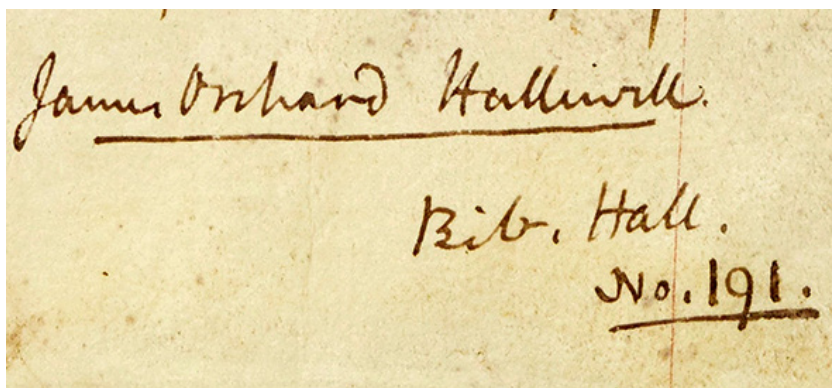 James Orchard Halliwell.
Bib. Hall.
No. 191.